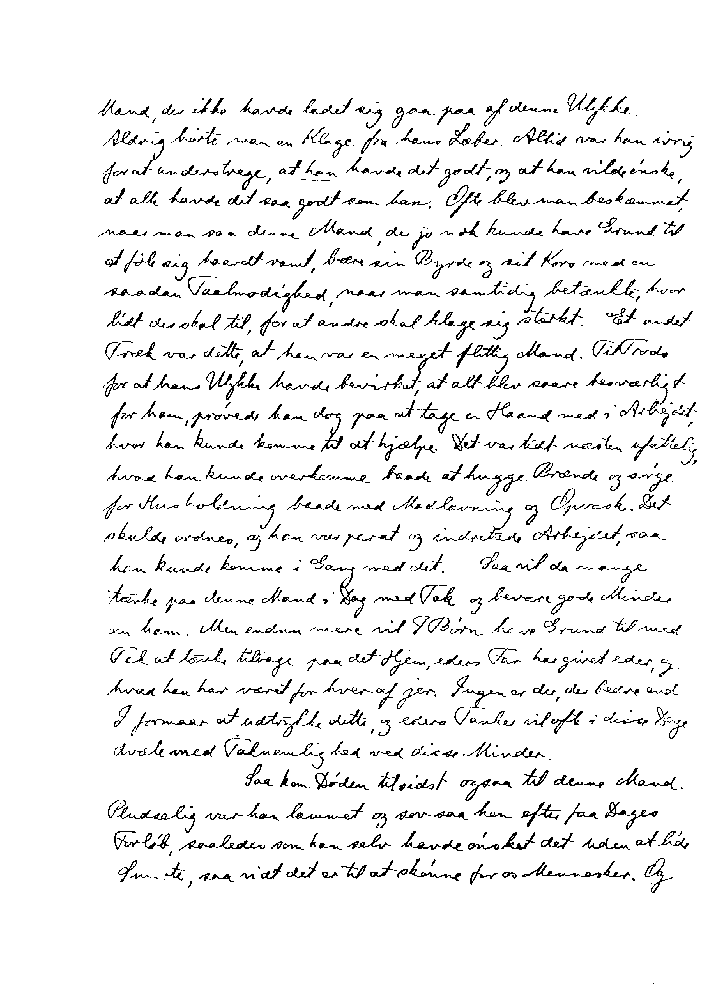 Mand, der ikke havde ladet sig gaa paa af denne Ulykke.
Aldrig hørte man en Klage fra hans Læber. Altid var han ivrig
for at understrege, at han havde det godt, og at han vilde ønske,
at alle havde det saa godt som han. Ofte blev man beskæmmet,
naar man saa denne Mand, der jo nok kunde have Grund til
at føle sig haardt ramt, bære sin Byrde og sit Kors med en
saadan Taalmodighed, naar man samtidig betænkte, hvor
lidt der skal til, for at andre skal klage sig stærkt. Et andet
Træk var dette, at han var en meget flittig Mand. Til Trods
for at hans Ulykke havde bevirket, at alt blev saare besværligt
for ham, prøvede han dog paa at tage en Haand med i Arbejdet,
hvor han kunde komme til at hjælpe. Det var tidt næsten ufatteligt,
hvad han kunde overkomme baade at hugge Brænde og sørge
for Husholdning baade med Madlavning og Opvask. Det
skulde ordnes, og han var parat og indrettede Arbejdet, saa
han kunde komme i Gang med det. Saa vil da mange
tænke paa denne Mand i Dag med Tak og bevare gode Minder
om ham. Men endnu mere vil I Børn have Grund til med
Tak at tænke tilbage paa det Hjem, eders Far har givet eder, og
hvad han har været for hver af jer. Ingen er der, der bedre end
I formaar at udtrykke dette, og eders Tanker vil ofte i disse Dage
dvæle med Taknemlighed ved disse Minder.
Saa kom Døden tilsidst ogsaa til denne Mand.
Pludselig var han lammet og sov saa hen efter faa Dages
Forløb, saaledes som han selv havde ønsket det uden at lide
Smerte, saa vidt det er til at skønne for os Mennesker. Og